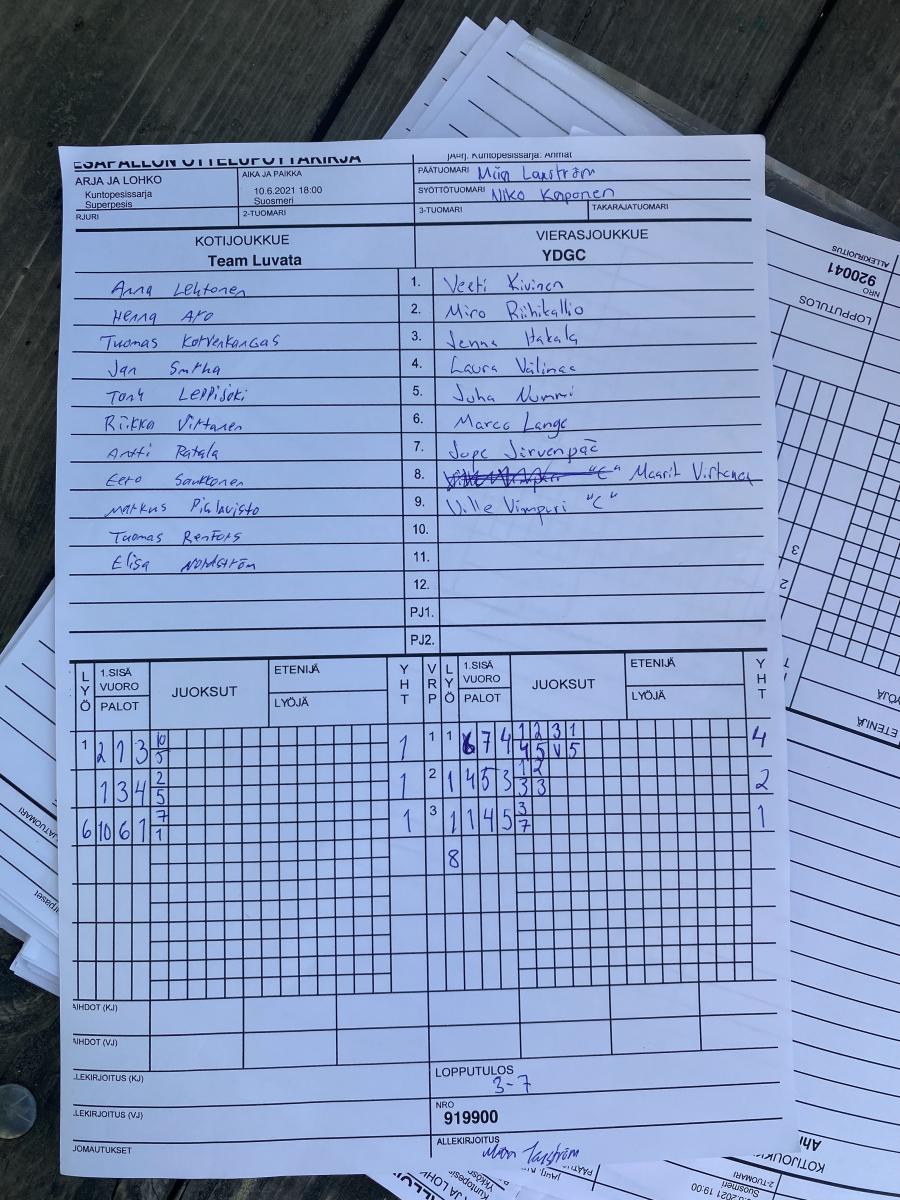 ESÄPALLON OTTELUPÖYTÄKIRJA
Järj. Kuntopesissarja: Ahmat
ARJA JA LOHKO
Kuntopesissarja
Superpesis
AIKA JA PAIKKA
10.6.2021 18:00
Suosmeri
PÄÄTUOMARI
SYÖTTÖTUOMARI Niko Kaponen
RJURI
2-TUOMARI
3-TUOMARI
TAKARAJATUOMARI
KOTIJOUKKUE
Team Luvata
VIERASJOUKKUE
YDGC
Anna Lehtonen 1. Veeti Kivinen
Henna Aro 2. Miro Riihikallio
Tuomas Korvenkangas 3. Jenna Hakala
Jan 4. Laura
Leppijoki 5. Juha Nummi
Riikka Virtanen 6. Marco Lange
Antti Ratala 7. Jope Järvenpää
Eero Saukkonen 8. "C" Maarit Virtanen
Markus 9. Ville Vimpuri "C"
Tuomas Renfors 10.
Elisa Nordström 11.
12.
PJ1.
PJ2.
LYÖ 1.SISÄ VUORO PALOT JUOKSUT ETENIJÄ LYÖJÄ YHT VRP LYÖ 1.SISÄ VUORO PALOT JUOKSUT ETENIJÄ LYÖJÄ YHT
1 2 1 3 10 5 1 1 1 6 7 4 1 2 3 1 4 5 4 5 4
1 3 4 2 5 1 2 1 4 5 3 1 2 3 3 2
6 10 6 1 7 1 1 3 1 1 4 5 3 7 1
8
AIHDOT (KJ)
AIHDOT (VJ)
LLEKIRJOITUS (KJ)
LOPPUTULOS
3-7
LLEKIRJOITUS (VJ)
NRO
919900
JOMAUTUKSET
ALLEKIRJOITUS
ALLEKIRJOITUS
NRO
920041
LOPPUTULOS
3
2
ETENIJÄ
LYÖJÄ
KOTIJOUKK
2-TUOMARI
Suosmeri
2021 19:00